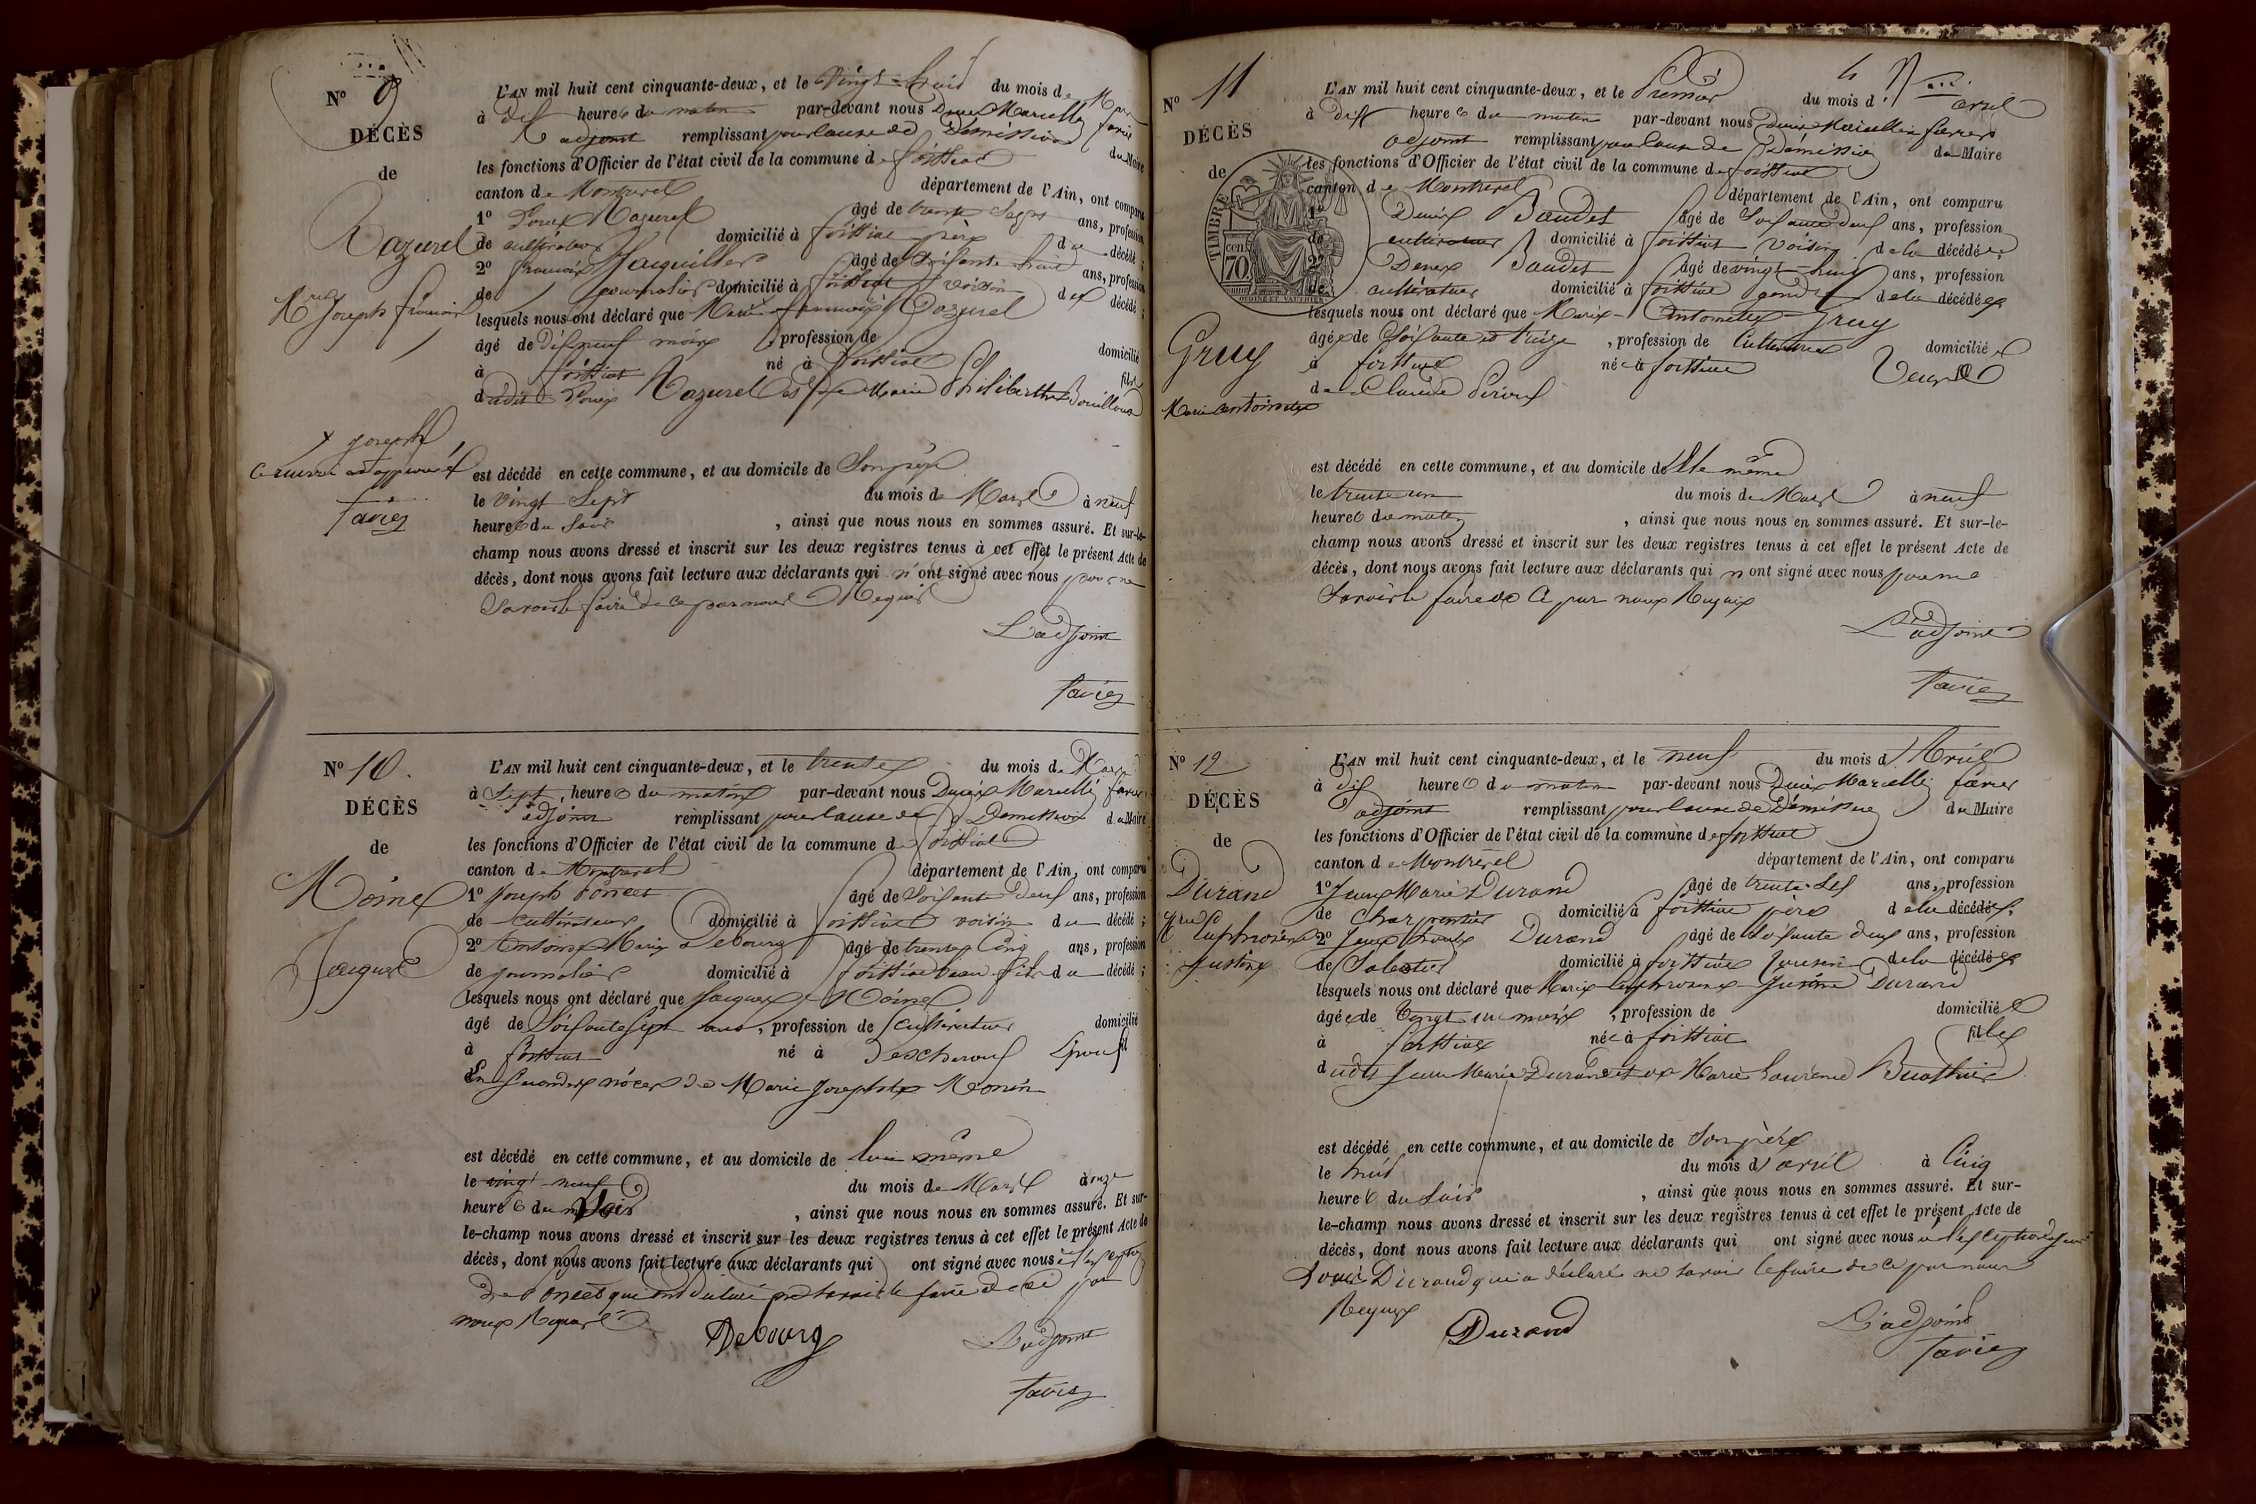 N° 9
DÉCÈS
de
Mazurel
Mie Joseph françois
X joseph
et renvoi approuvé
favier
L'AN mil huit cent cinquante-deux, et le vingt-huit du mois de Mars
à dix heures du matin par-devant nous Denis Marcellin favier
adjoint remplissant pour cause de Démission du Maire
les fonctions d'Officier de l'état civil de la commune de foissiat
canton de Montrevel département de l'Ain, ont comparu
1° Mazurel âgé de trente ans, profession
de cultivateur domicilié à foissiat père du décédé;
2° françois Jacquillet âgé de soixante huit ans, profession
de journalier domicilié à foissiat voisin du décédé;
lesquels nous ont déclaré que Marie françois Mazurel
âgé de dix neuf mois, profession de domicilié
à foissiat né à foissiat fils
dudit Mazurel et de Marie Philiberthe Bouilloux
est décédé en cette commune, et au domicile de Son père
le vingt Sept du mois de Mars à neuf
heures du soir, ainsi que nous nous en sommes assuré. Et sur-le-
champ nous avons dressé et inscrit sur les deux registres tenus à cet effet le présent Acte de
décès, dont nous avons fait lecture aux déclarants qui n'ont signé avec nous pour ne
Savoir le faire de ce par nous Requis
L'adjoint
favier
N° 10.
DÉCÈS
de
Moine
Jacques
L'AN mil huit cent cinquante-deux, et le trente du mois de Mars
à Sept heures du matin par-devant nous Denis Marcellin favier
adjoint remplissant pour cause de Démission du Maire
les fonctions d'Officier de l'état civil de la commune de foissiat
canton de Montrevel département de l'Ain, ont comparu
1° Joseph Poncet âgé de Soixante Deux ans, profession
de cultivateur domicilié à foissiat voisin du décédé;
2° Antoine Marie Debourg âgé de trente Cinq ans, profession
de journalier domicilié à foissiat beau-fils du décédé;
lesquels nous ont déclaré que Jacques Moine
âgé de Soixante Sept ans, profession de Cultivateur domicilié
à foissiat né à Epoux
En Secondes nôces de Marie Josephte Monin
est décédé en cette commune, et au domicile de lui même
le vingt-neuf du mois de Mars à onze
heures du Soir, ainsi que nous nous en sommes assuré. Et sur-
le-champ nous avons dressé et inscrit sur les deux registres tenus à cet effet le présent Acte de
décès, dont nous avons fait lecture aux déclarants qui ont signé avec nous à l'exception
de Poncet qui a déclaré ne savoir le faire de ce par
nous Requis
Debourg
L'adjoint
favier
4
N° 11
DÉCÈS
de
Gruy
Marie antoinette
TIMBRE
70 cen
L'AN mil huit cent cinquante-deux, et le Premier du mois d'avril
à dix heures du matin par-devant nous Denis Marcellin favier
adjoint remplissant pour cause de Démission du Maire
les fonctions d'Officier de l'état civil de la commune de foissiat
canton de Montrevel département de l'Ain, ont comparu
1° Denis Baudet âgé de Soixante deux ans, profession
de cultivateur domicilié à foissiat voisin de la décédée;
2° Denis Baudet âgé de vingt-huit ans, profession
de cultivateur domicilié à foissiat gendre de la décédée
lesquels nous ont déclaré que Marie-Antoinette Gruy
âgée de Soixante et treize, profession de Cultivatrice domiciliée
à foissiat née à foissiat Veuve
de Claude
est décédé en cette commune, et au domicile d'Elle même
le trente un du mois de Mars à neuf
heures du matin, ainsi que nous nous en sommes assuré. Et sur-le-
champ nous avons dressé et inscrit sur les deux registres tenus à cet effet le présent Acte de
décès, dont nous avons fait lecture aux déclarants qui n'ont signé avec nous pour ne
Savoir le faire de ce par nous Requis
L'adjoint
favier
N° 12
DÉCÈS
de
Durand
Euphrosine
Justine
L'AN mil huit cent cinquante-deux, et le neuf du mois d'Avril
à dix heures du matin par-devant nous Denis Marcellin favier
adjoint remplissant pour cause de Démission du Maire
les fonctions d'Officier de l'état civil de la commune de foissiat
canton de Montrevel département de l'Ain, ont comparu
1° Jean Marie Durand âgé de trente-six ans, profession
de Charpentier domicilié à foissiat père de la décédée;
2° Jean Louis Durand âgé de Soixante deux ans, profession
de Sabotier domicilié à foissiat Cousin de la décédée
lesquels nous ont déclaré que Marie-Euphrosine-Justine Durand
âgée de Vingt un mois, profession de domiciliée
à foissiat née à foissiat fille
dudit Jean Marie Durand et de Marie Laurence Buathier
est décédé en cette commune, et au domicile de Son père
le huit du mois d'avril à Cinq
heures du Soir, ainsi que nous nous en sommes assuré. Et sur-
le-champ nous avons dressé et inscrit sur les deux registres tenus à cet effet le présent Acte de
décès, dont nous avons fait lecture aux déclarants qui ont signé avec nous à l'exception de Jean
Louis Durand qui a déclaré ne savoir le faire de ce par nous
Requis
Durand
L'adjoint
favier